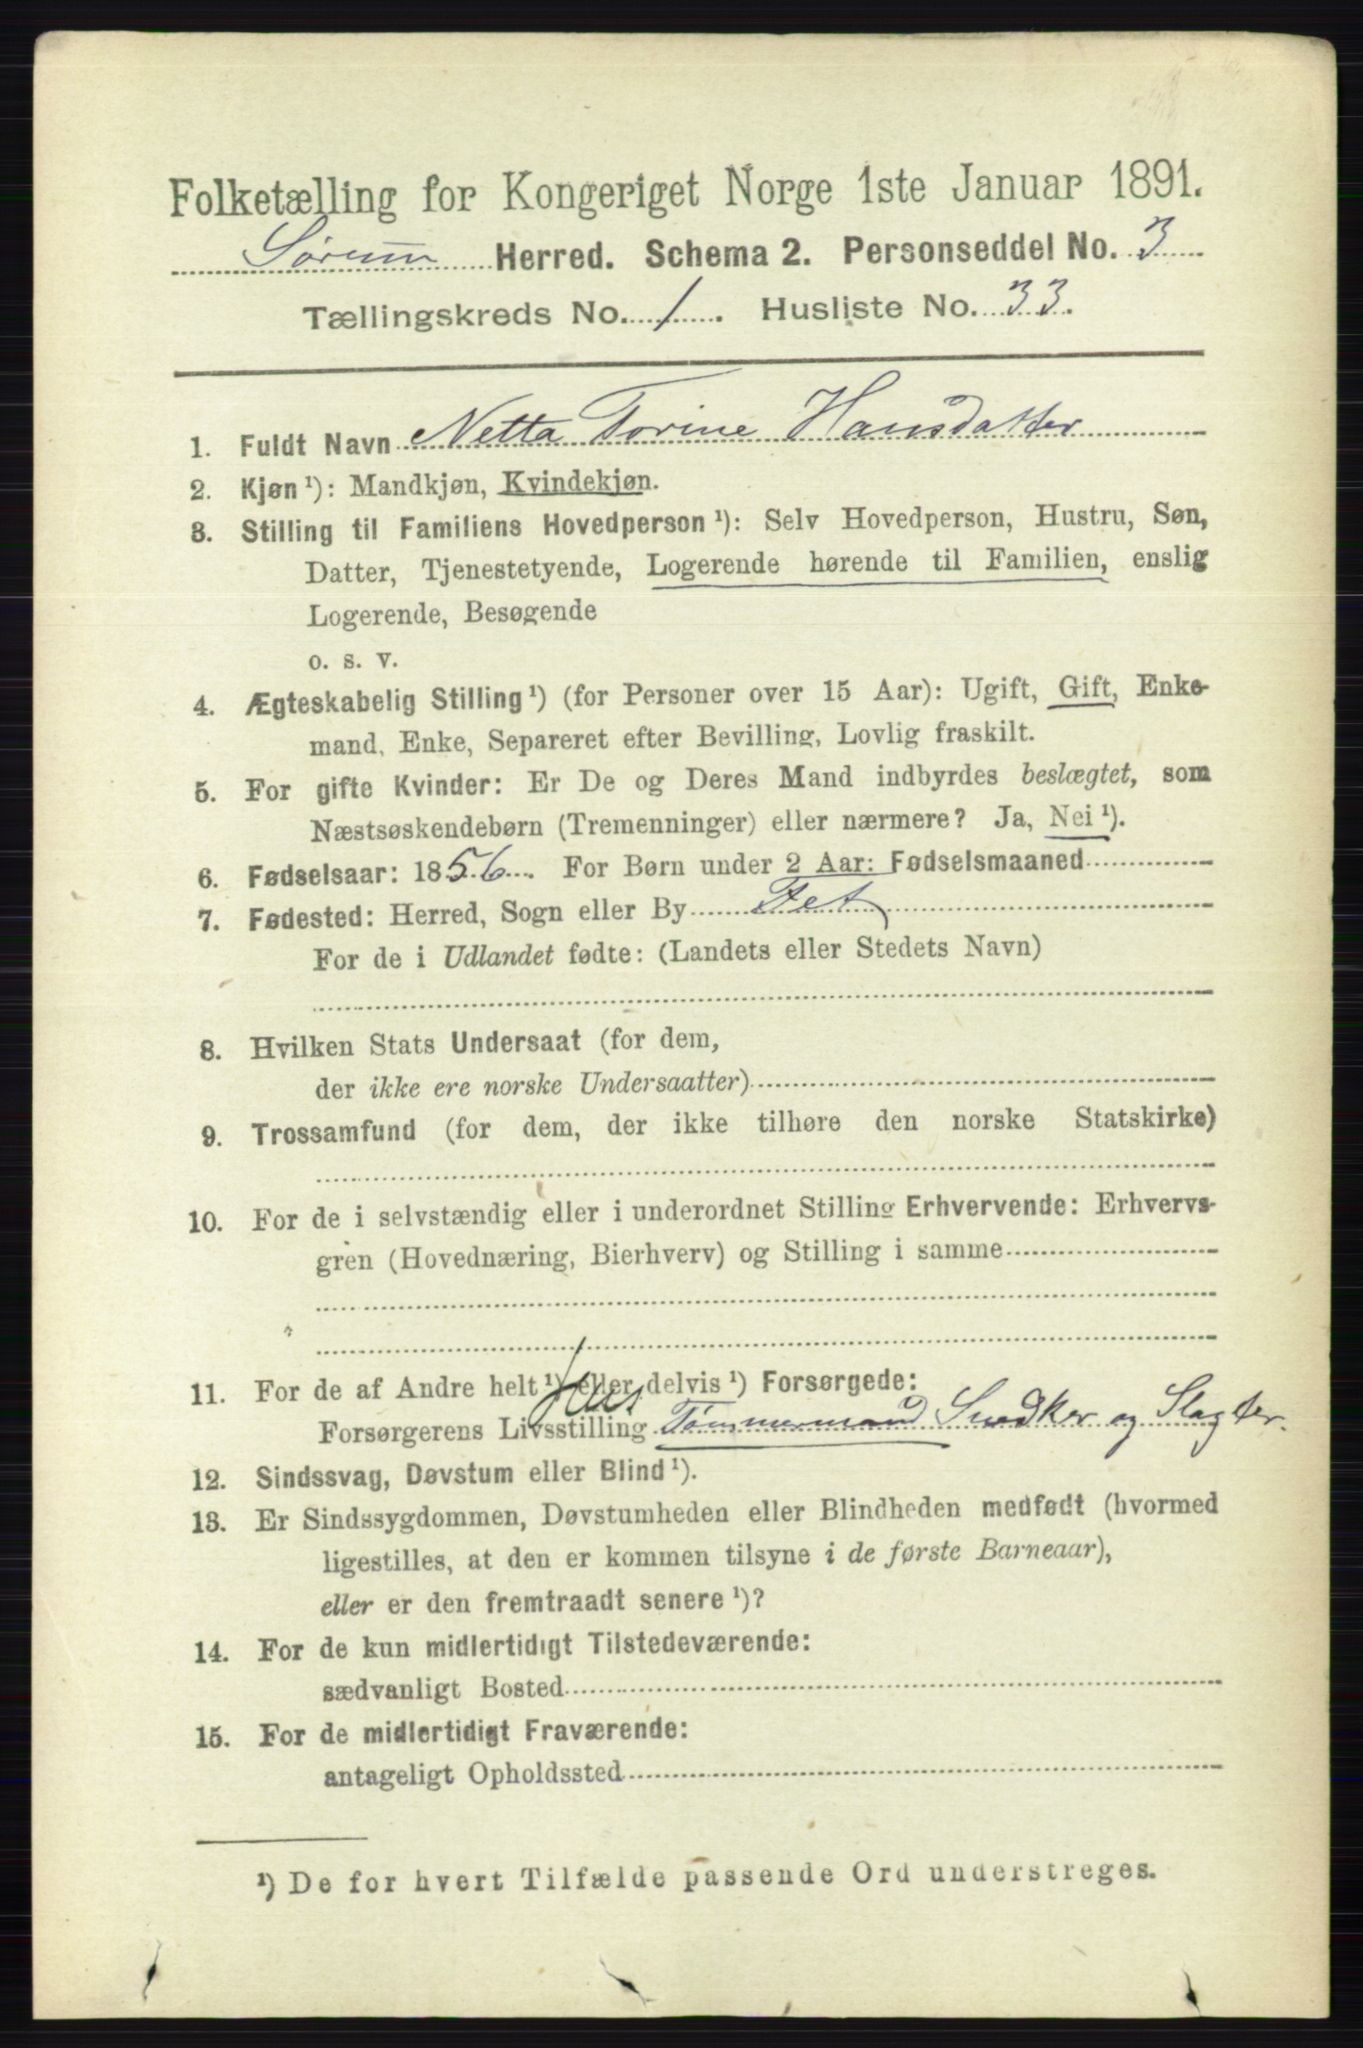 Folketælling for Kongeriget Norge 1ste Januar 1891.
Sørum Herred. Schema 2. Personseddel No. 3
Tællingskreds No. 1. Husliste No. 33.
1. Fuldt Navn Netta Torine Hansdatter
2. Kjøn ¹): Mandkjøn, Kvindekjøn.
3. Stilling til Familiens Hovedperson ¹): Selv Hovedperson, Hustru, Søn,
Datter, Tjenestetyende, Logerende hørende til Familien, enslig
Logerende, Besøgende
o. s. v.
4. Ægteskabelig Stilling ¹) (for Personer over 15 Aar): Ugift, Gift, Enke-
mand, Enke, Separeret efter Bevilling, Lovlig fraskilt.
5. For gifte Kvinder: Er De og Deres Mand indbyrdes beslægtet, som
Næstsøskendebørn (Tremenninger) eller nærmere? Ja, Nei ¹).
6. Fødselsaar: 1856. For Børn under 2 Aar: Fødselsmaaned
7. Fødested: Herred, Sogn eller By Fet
For de i Udlandet fødte: (Landets eller Stedets Navn)
8. Hvilken Stats Undersaat (for dem,
der ikke ere norske Undersaatter)
9. Trossamfund (for dem, der ikke tilhøre den norske Statskirke)
10. For de i selvstændig eller i underordnet Stilling Erhvervende: Erhvervs-
gren (Hovednæring, Bierhverv) og Stilling i samme
11. For de af Andre helt ¹) eller delvis ¹) Forsørgede:
Forsørgerens Livsstilling Hus Tømmermand Snedker og Slagter.
12. Sindssvag, Døvstum eller Blind ¹).
13. Er Sindssygdommen, Døvstumheden eller Blindheden medfødt (hvormed
ligestilles, at den er kommen tilsyne i de første Barneaar),
eller er den fremtraadt senere ¹)?
14. For de kun midlertidigt Tilstedeværende:
sædvanligt Bosted
15. For de midlertidigt Fraværende:
antageligt Opholdssted
¹) De for hvert Tilfælde passende Ord understreges.